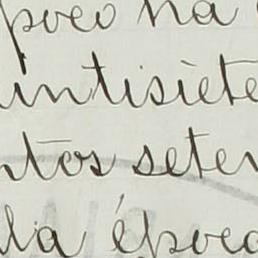 poco ha
intisiete
ntos seten
la época